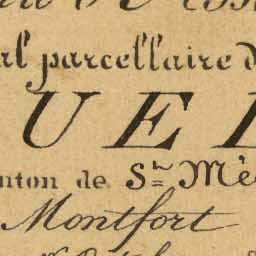 al parcellaire d
UEL
nton de Sn Mé
Montfort